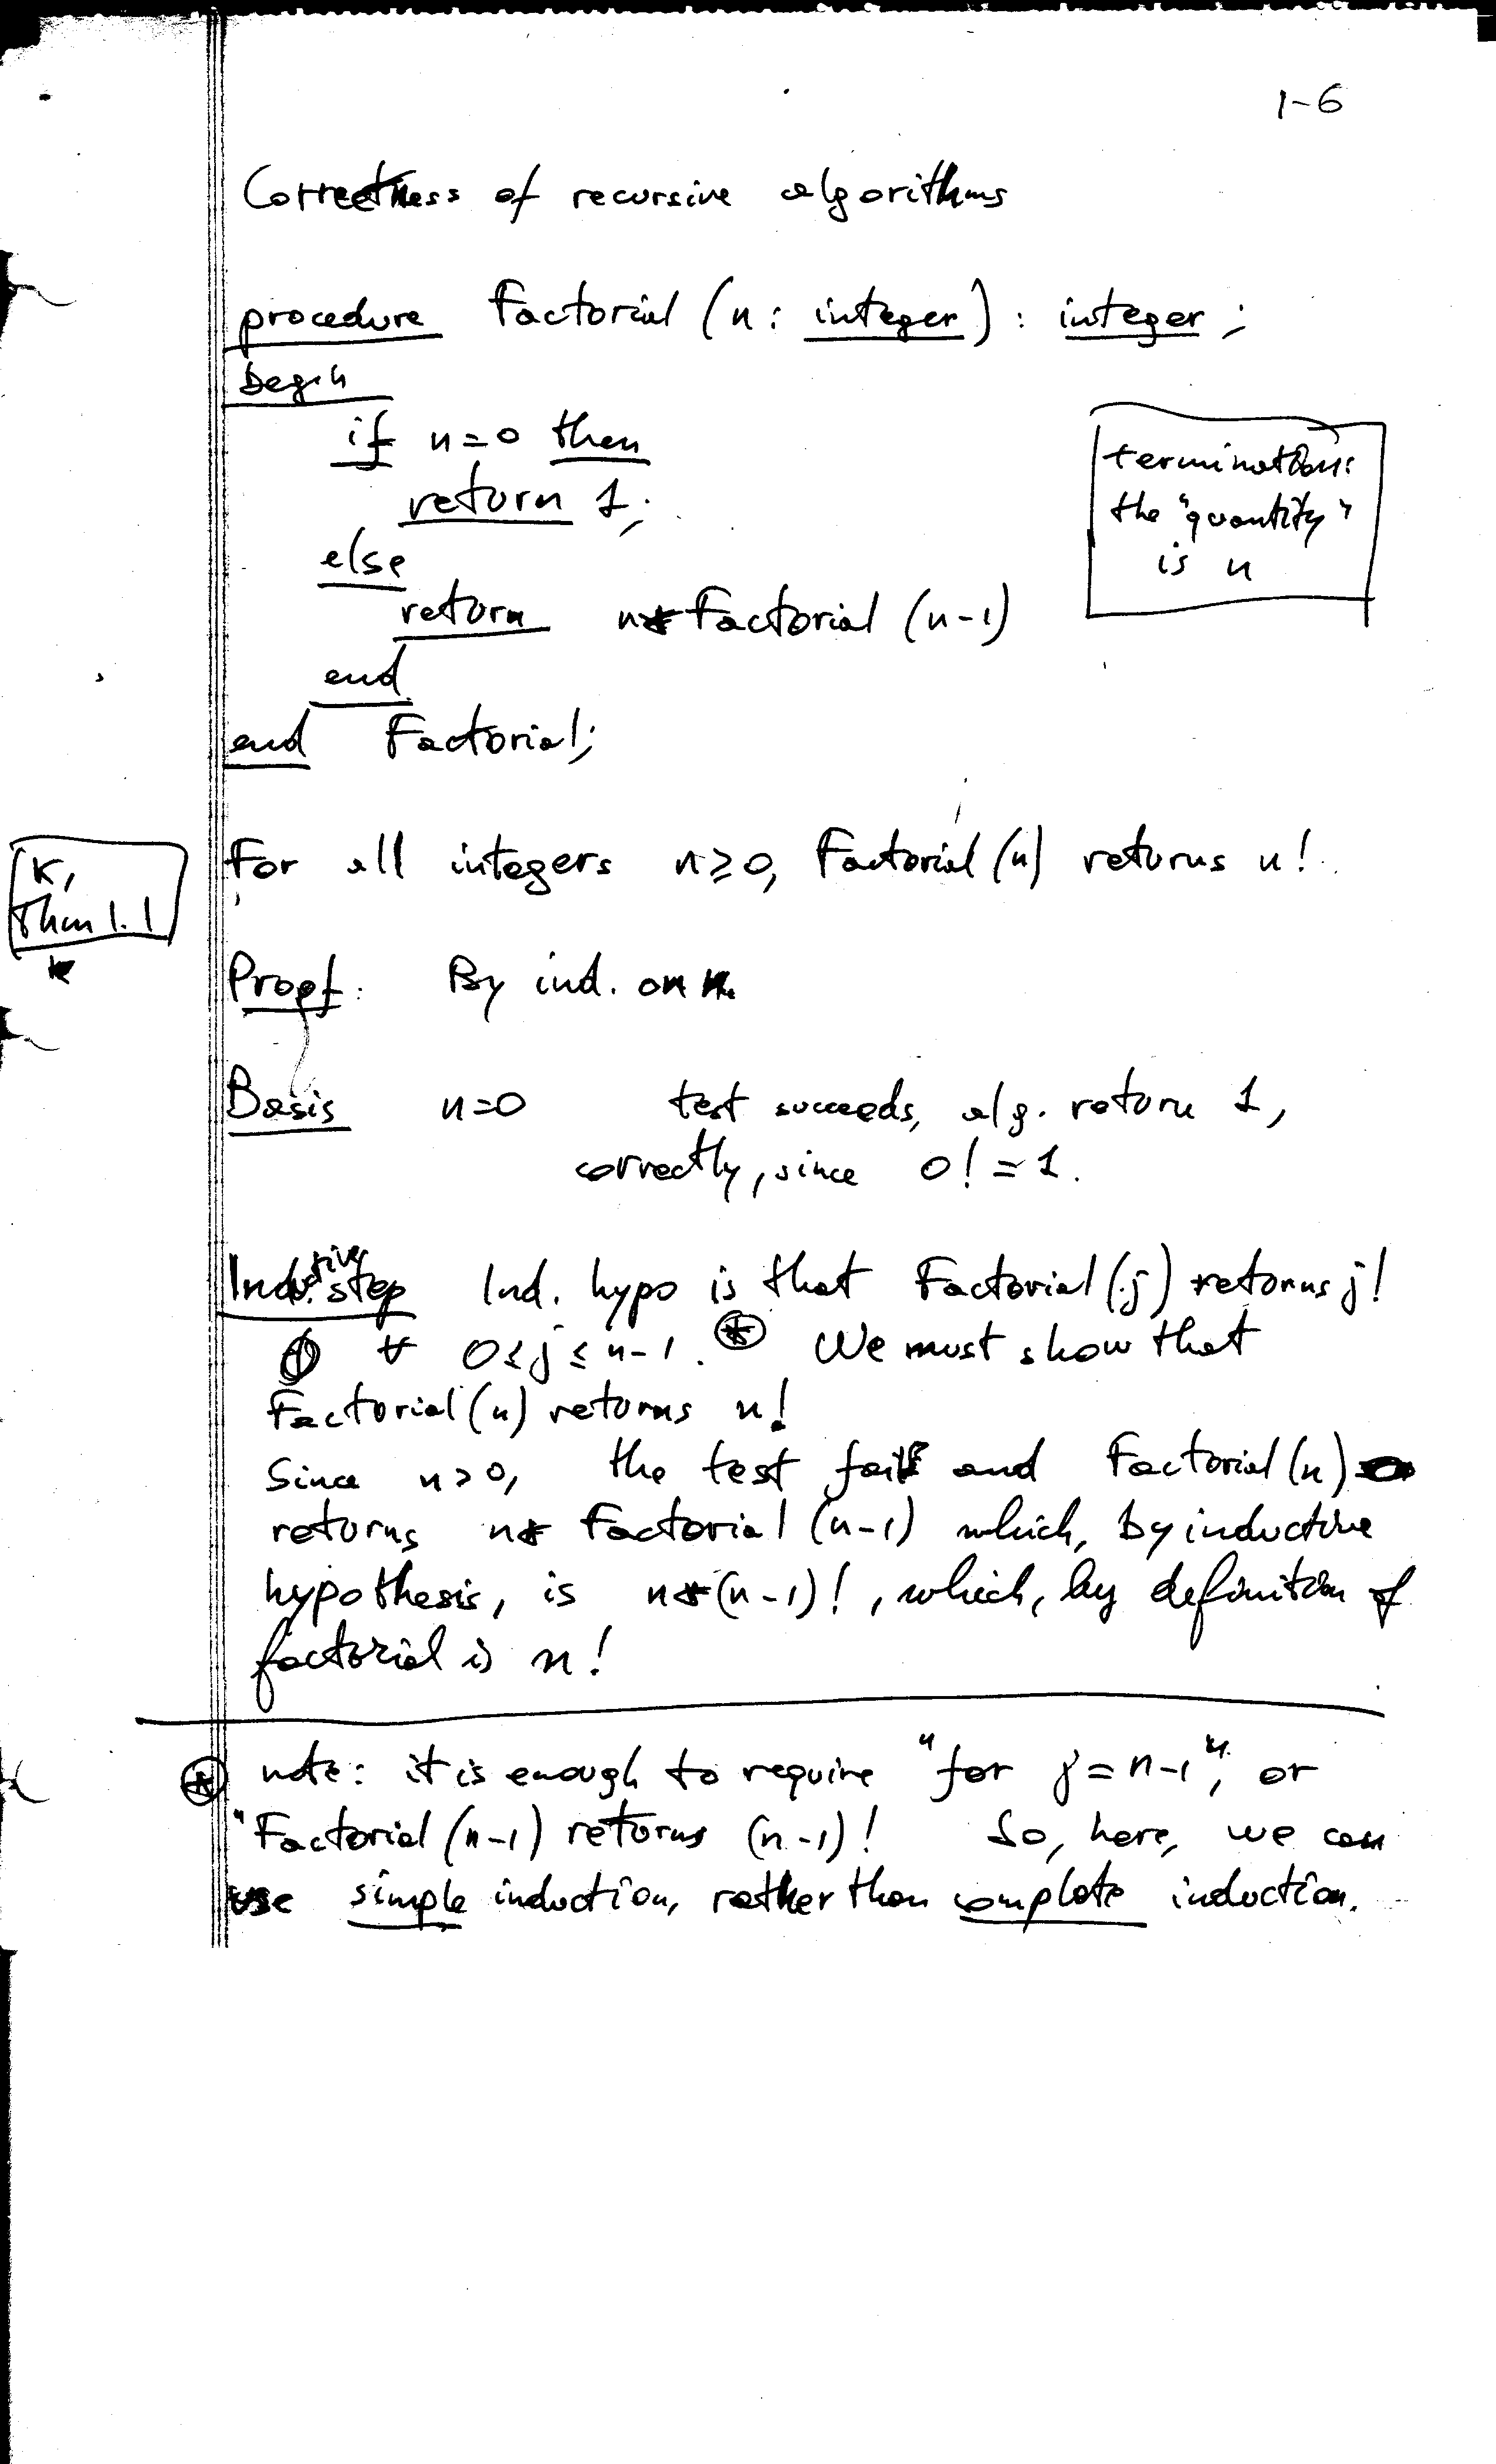 1-6
Correctness of recursive algorithms
procedure Factorial (n: integer) : integer;
begin
if n=0 then
return 1;
else
return n*Factorial (n-1)
end
end Factorial;
termination:
the "quantity"
is n
K,
Thm 1.1
For all integers n≥0, Factorial (n) returns n!.
Proof: By ind. on n.
Basis n=0 test succeeds, alg. return 1,
correctly, since 0! = 1.
Inductive step Ind. hypo is that Factorial (j) returns j!
∀ 0≤j≤n-1. ⊛ We must show that
Factorial (n) returns n!
Since n>0, the test fails and Factorial (n)
returns n* Factorial (n-1) which, by inductive
hypothesis, is n*(n-1)!, which, by definition of
factorial is n!
⊛ note: it is enough to require "for j=n-1", or
"Factorial (n-1) returns (n-1)! So, here, we can
use simple induction, rather than complete induction.